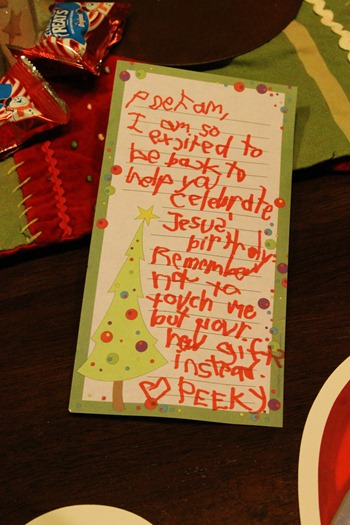 TREATS
I am so
excited to
be back to
help you
celebrate
Jesus'
birthday.
Remember
not to
touch me
but your
new gift
instead.
♡ PEEKY